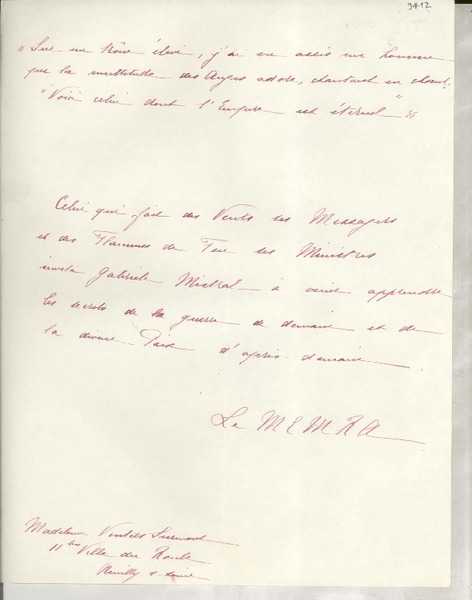 3412
"Sur un Trône élevé, j'ai vu assis un homme
que la multitude des Anges adore, chantant en chœur:
"Voici celui dont l'Empire est éternel"
Celui qui fait des Vents ses Messagers
et des Flammes de Feu ses Ministres
invite Gabriela Mistral à venir apprendre
les secrets de la guerre de demain et de
la divine Paix d'après-demain
Le MEMRA
Madeleine
11 bis Villa du Roule
Neuilly s. Seine